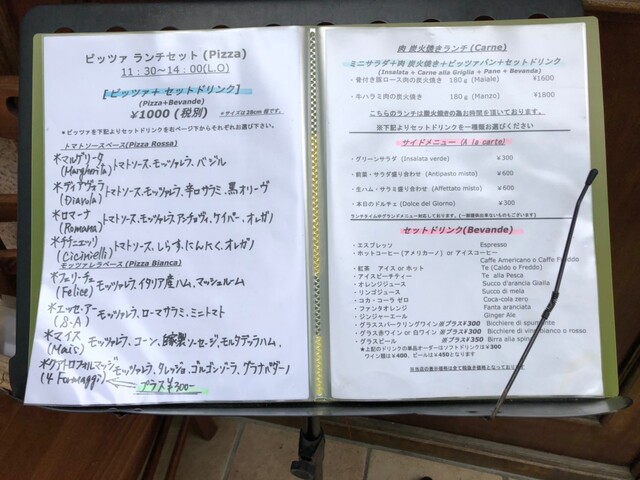 ピッツァ ランチセット (Pizza)
11:30～14:00(L.O)
[ピッツァ＋ セットドリンク]
(Pizza+Bevande)
¥1000 (税別) ＊サイズは28cm 超です。
＊ピッツァを下記よりセットドリンクを右ページ下からそれぞれお選び下さい。
トマトソースベース(Pizza Rossa)
＊マルゲリータ トマトソース、モッツァレラ、バジル
(Margherita)
＊ディアヴォラ トマトソース、モッツァレラ、辛口サラミ、黒オリーヴ
(Diavola)
＊ロマーナ トマトソース、モッツァレラ、アンチョヴィ、ケイパー、オレガノ
(Romana)
＊チチニエッリ トマトソース、しらす、にんにく、オレガノ
(Cicinielli)
モッツァレラベース(Pizza Bianca)
＊フェリーチェ モッツァレラ、イタリア産ハム、マッシュルーム
(Felice)
＊エッセ・アー モッツァレラ、ローマサラミ、ミニトマト
(S・A)
＊マイス モッツァレラ、コーン、自家製ソーセージ、モルタデッラハム、
(Mais)
＊クアトロフォルマッジ モッツァレラ、タレッジョ、ゴルゴンゾーラ、グラナパダーノ
(4 Formaggi) ← プラス¥300-
肉 炭火焼きランチ (Carne)
ミニサラダ＋肉 炭火焼き＋ピッツァパン＋セットドリンク
(Insalata + Carne alla Griglia + Pane + Bevanda)
・骨付き豚ロース肉の炭火焼き 180ｇ(Maiale) ¥1600
・牛ハラミ肉の炭火焼き 180ｇ(Manzo) ¥1800
こちらのランチは炭火焼きの為お時間を頂いております。
※下記よりセットドリンクを一種類お選びください
サイドメニュー (A la carte)
・グリーンサラダ (Insalata verde) ¥300
・前菜・サラダ盛り合わせ (Antipasto misto) ¥600
・生ハム・サラミ盛り合わせ (Affettato misto) ¥600
・本日のドルチェ (Dolce del Giorno) ¥300
ランチタイム中グランドメニュー対応しております。(一部提供出来ないものもございます)
セットドリンク(Bevande)
・エスプレッソ Espresso
・ホットコーヒー (アメリカーノ) or アイスコーヒー
Caffe Americano o Caffe Freddo
・紅茶 アイス or ホット Te (Caldo o Freddo)
・アイスピーチティー Te alla Pesca
・オレンジジュース Succo d'arancia Gialla
・リンゴジュース Succo di mela
・コカ・コーラ ゼロ Coca-cola zero
・ファンタオレンジ Fanta aranciata
・ジンジャーエール Ginger Ale
・グラススパークリングワイン ※プラス¥300※ Bicchiere di spumante
・グラス赤ワイン or 白ワイン ※プラス¥300※ Bicchiere di vino bianco o rosso
・グラスビール ※プラス¥350 ※ Birra alla spina
★上記のドリンクの単品オーダーはソフトドリンクは¥300
ワイン類は¥400、ビールは¥450となります
※当店の表示価格は全て税抜き価格となっております。